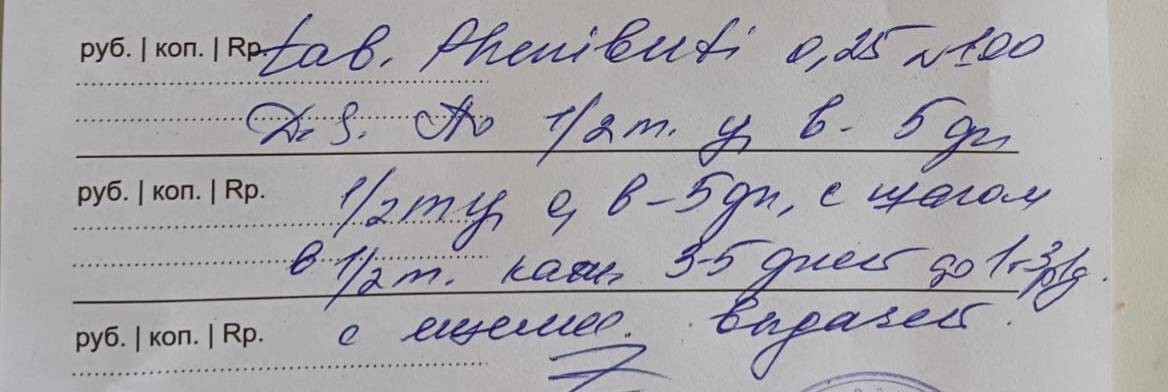 руб. | коп. | Rp. tab. Phenibuti 0,25 №100
D. S. По 1/2 т. у, в - 5 дн
руб. | коп. | Rp. 1/2 т у, о, в - 5 дн, с шагом
в 1/2 т. кажд 3-5 дней до 1т 3 р/д.
руб. | коп. | Rp. с ежемес. выдачей.